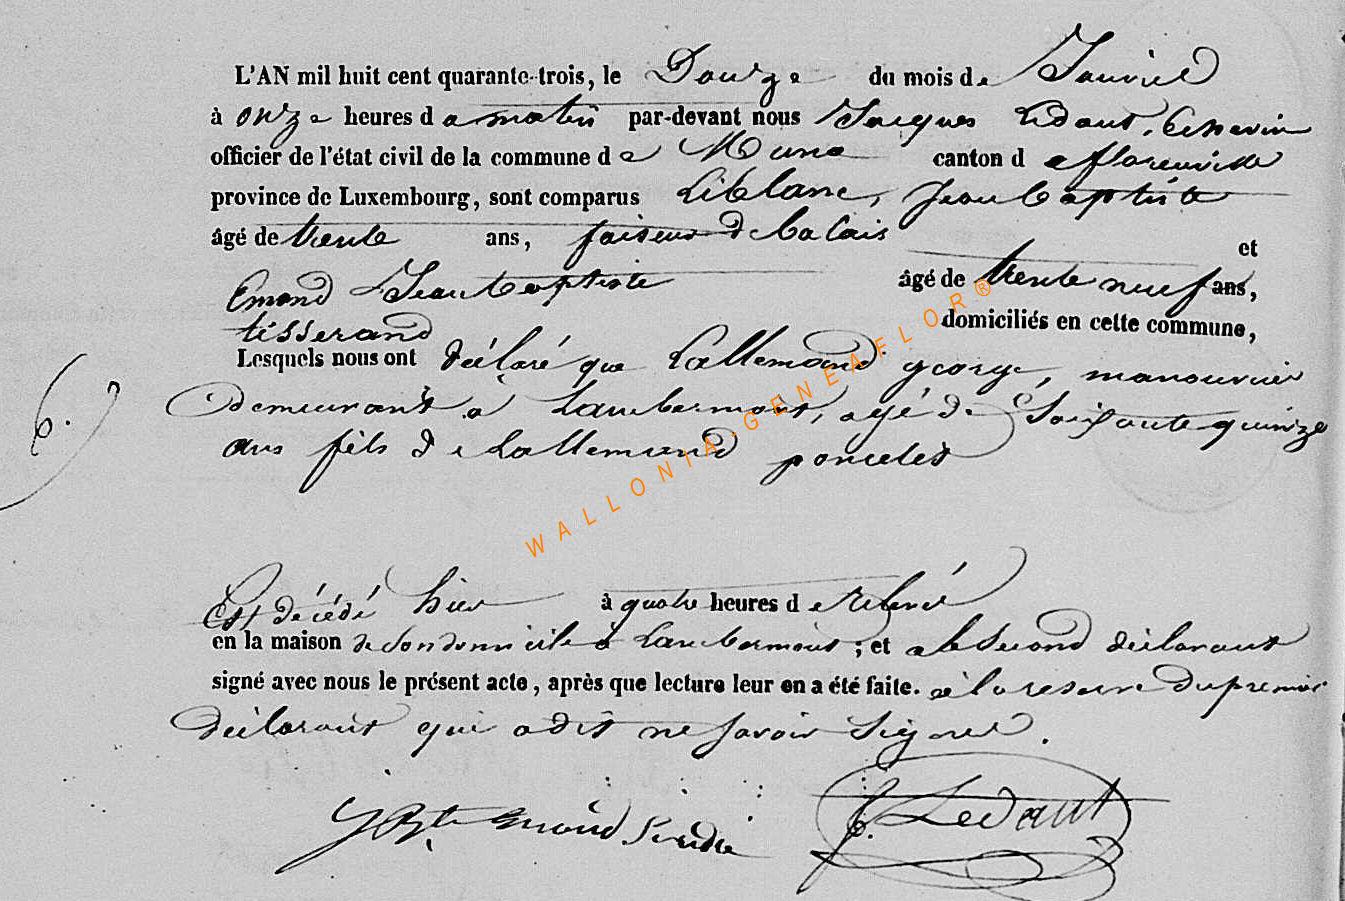 L'AN mil huit cent quarante-trois, le Douze du mois de Janvier
à onze heures d u matin par-devant nous Jacques Ledant, Echevin
officier de l'état civil de la commune de Muno canton d e florenville
province de Luxembourg, sont comparus Leblanc, Jean baptiste
âgé de trente ans, faiseur de balais et
Emond Jean baptiste âgé de trente neuf ans,
tisserand domiciliés en cette commune,
Lesquels nous ont déclaré que Lallemand george, manouvrier
6. demeurant à Lambermont, agé de Soixante quinze
ans fils de Lallemand poncelet
WALLONIA-GENEAFLOR®
Est décédé hier à quatre heures d e relevé
en la maison de son domicile à Lambermont ; et a le second déclarant
signé avec nous le présent acte, après que lecture leur en a été faite. à la reserve du premier
déclarant qui a dit ne savoir signer.
JBte Emond J. Ledant